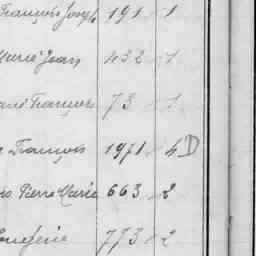 François Joseph 191 1
Marie Jean 432 1
François 73 1
François 1971 4D
Pierre Marie 663 2
Eugénie 773 2